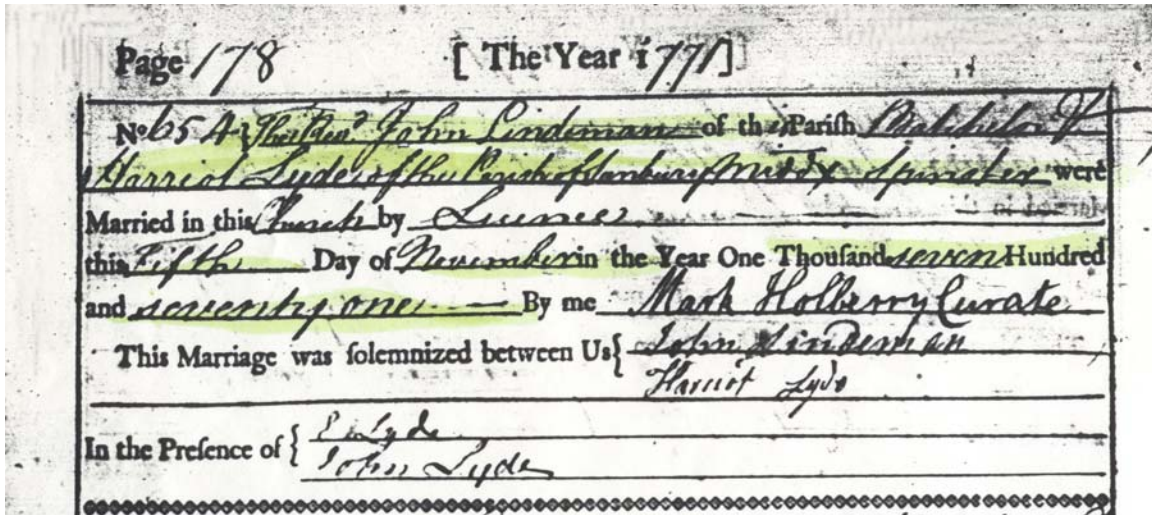 Page 178 [ The Year 1771 ]
No. 654 { The Revd John Lindeman of this Pariſh Batchelor &
Harriot Lyde of the Parish of Sunbury Middx Spinster were
Married in this Church by Licence
this Fifth Day of November in the Year One Thouſand seven Hundred
and seventy one By me Mark Holberry Curate
This Marriage was ſolemnized between Us { John Lindeman
Harriot Lyde
In the Preſence of { E Lyde
John Lyde